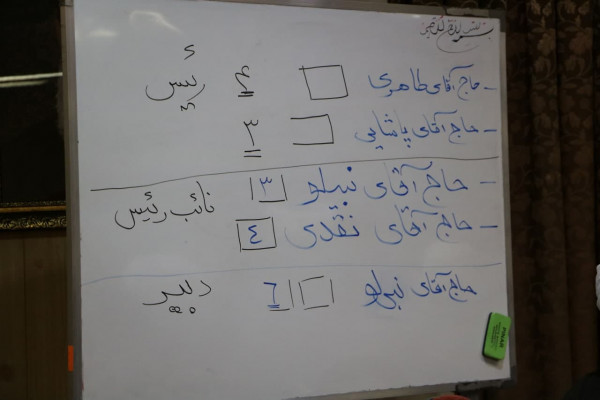 بسم الله الرحمن الرحیم
- حاج آقای طاهری ۴ رئیس
- حاج آقای پاشایی ۳
- حاج آقای نبیلو ۳
نائب رئیس
- حاج آقای نقدی ٤
حاج آقای نبیلو ٦ دبیر